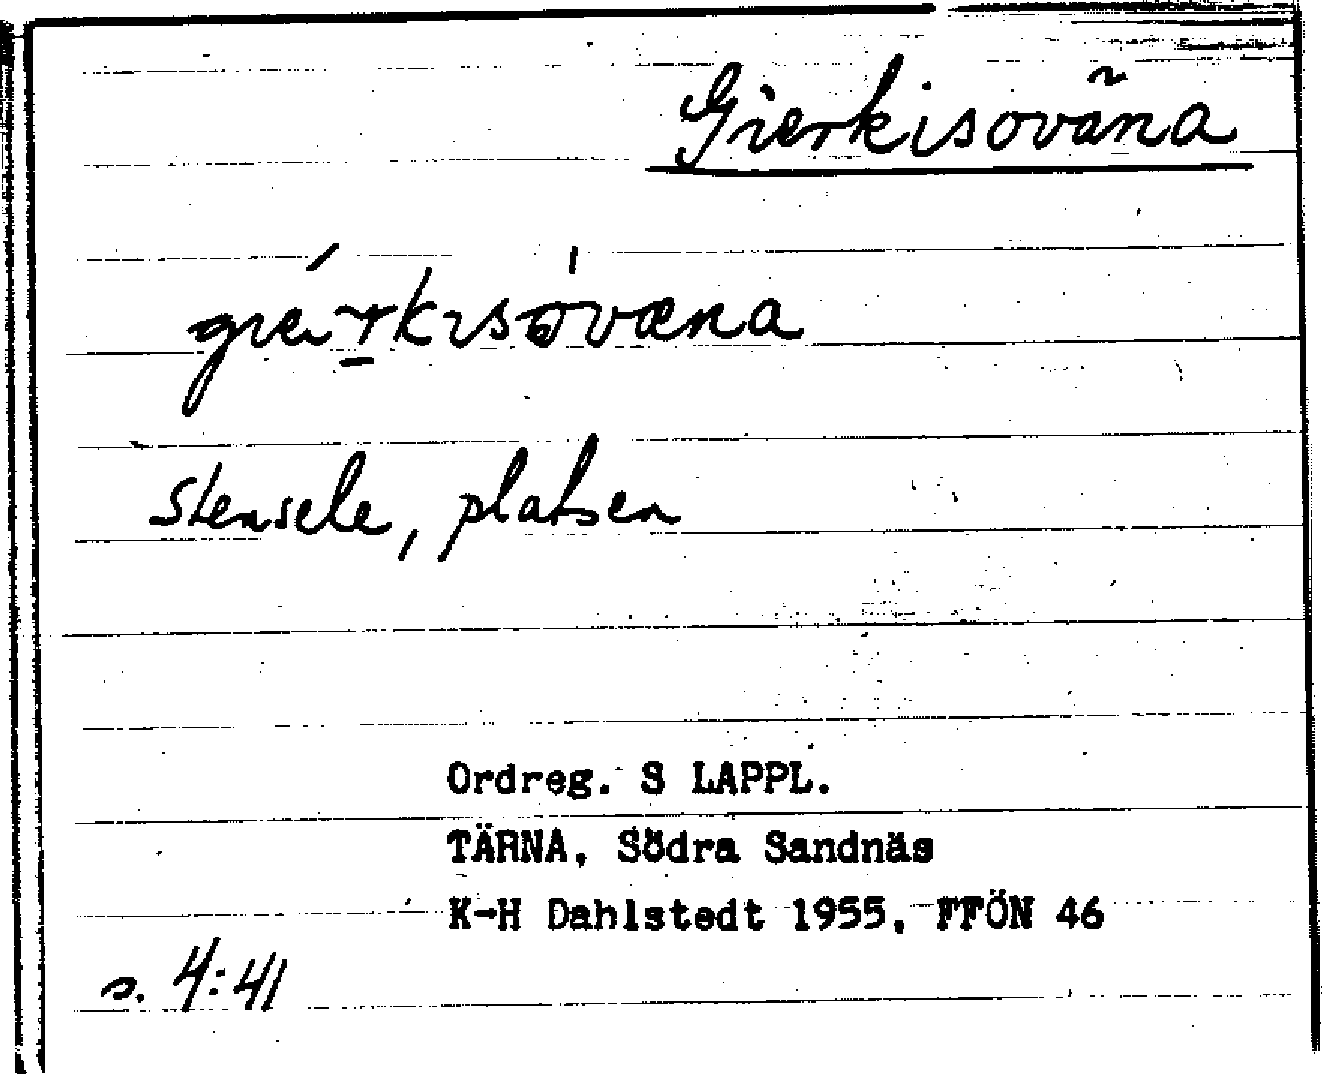 Gierkisoväna
Stensele, platsen
Ordreg. S LAPPL.
TÄRNA, Södra Sandnäs
K-H Dahlstedt 1955, FFÖN 46
s. 4:41